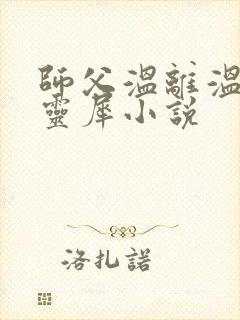 師父溫離溫
靈犀小說
洛扎諾